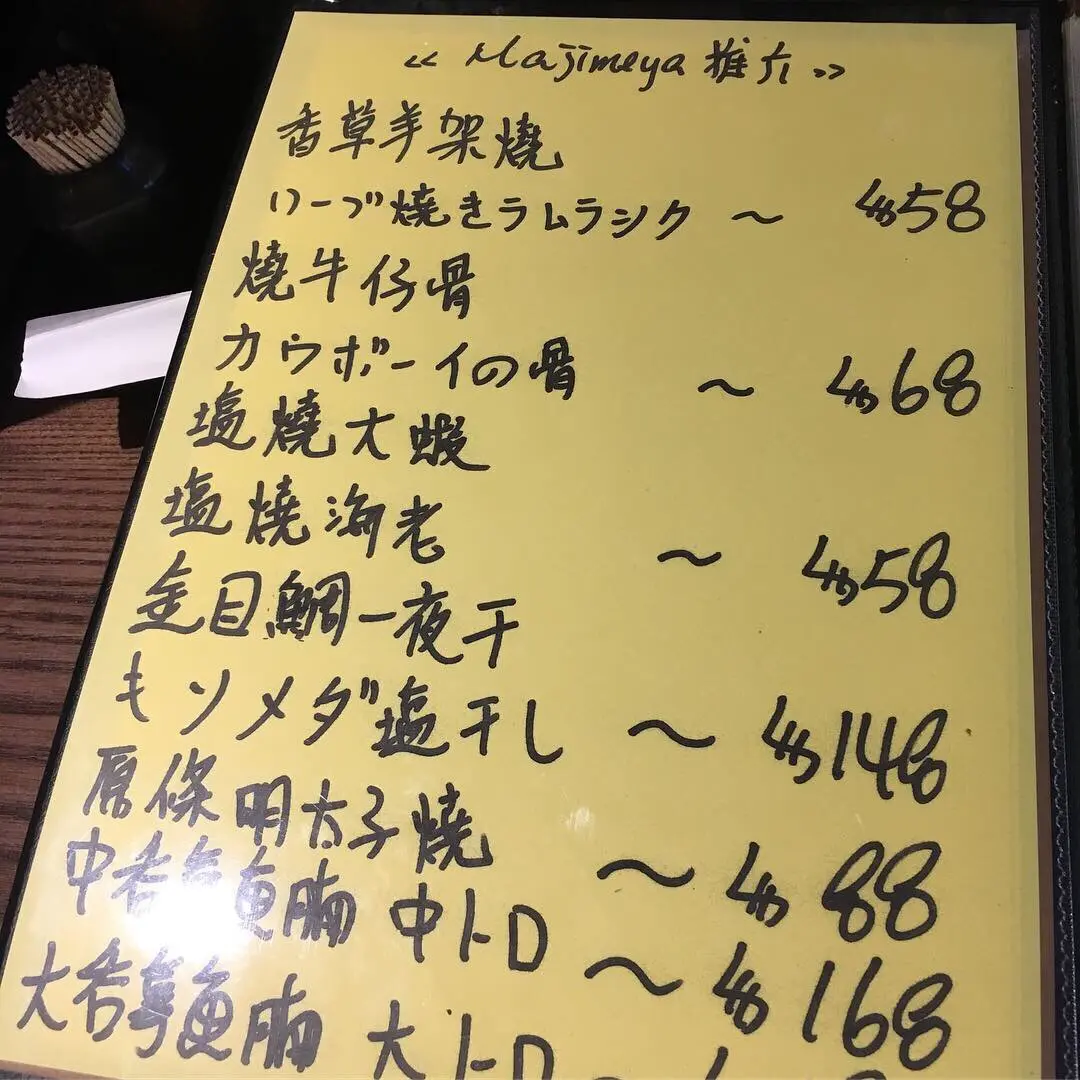 « Majimeya 推介 »
香草羊架燒
ハーブ燒きラムラシク ～ $58
燒牛仔骨
カウボーイの骨 ～ $68
塩燒大蝦
塩燒海老 ～ $58
金目鯛一夜干
キソメダ塩干し ～ $148
原條明太子燒 ～ $88
中吞拿魚腩 中トロ ～ $168
大吞拿魚腩 大トロ ～